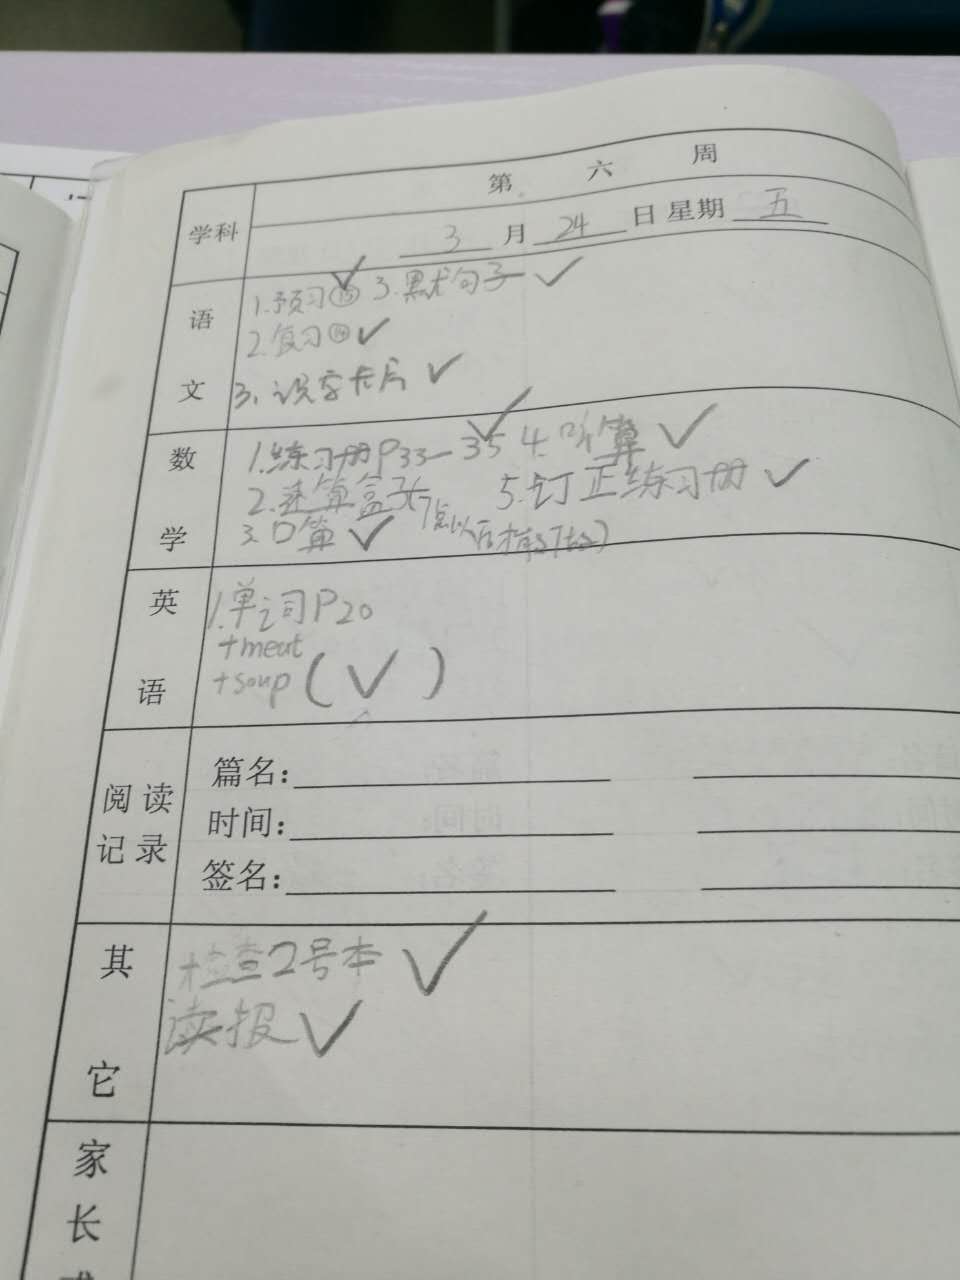 第六周
学科
3月24日星期五
语文
1.预习⑮ 3.默术句子 ✓
2.复习⑭ ✓
3.识字卡片 ✓
数学
1.练习册P33—35 4.听算 ✓
2.速算盒子(7点以后才有7好)
5.订正练习册 ✓
3.口算 ✓
英语
1.单词P20
+meat
+soup (✓)
阅读记录
篇名:
时间:
签名:
其它
检查2号本 ✓
读报 ✓
家长